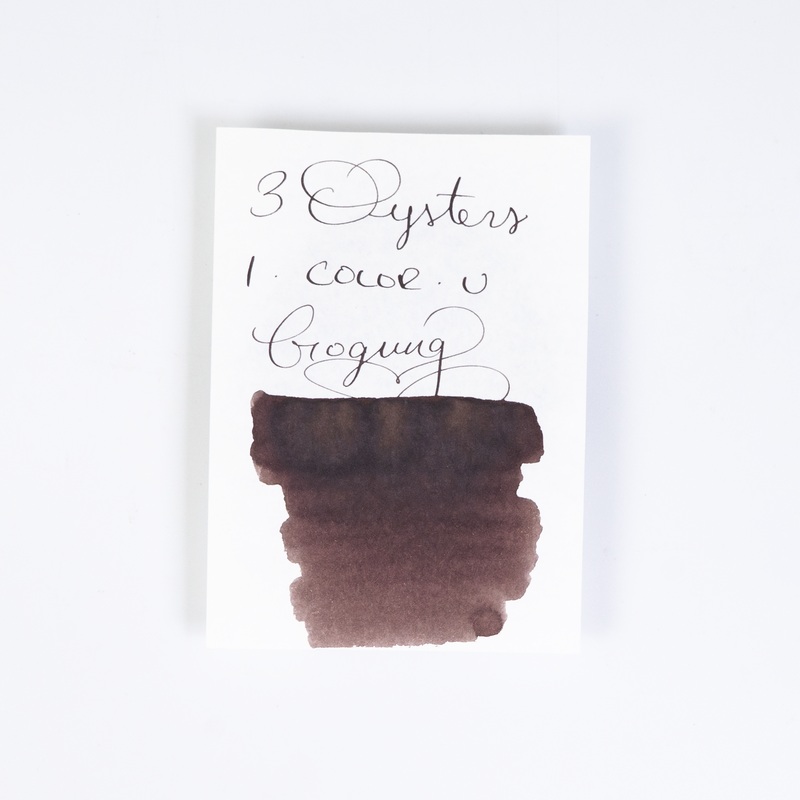 3 Oysters
I · COLOR · U
brogung